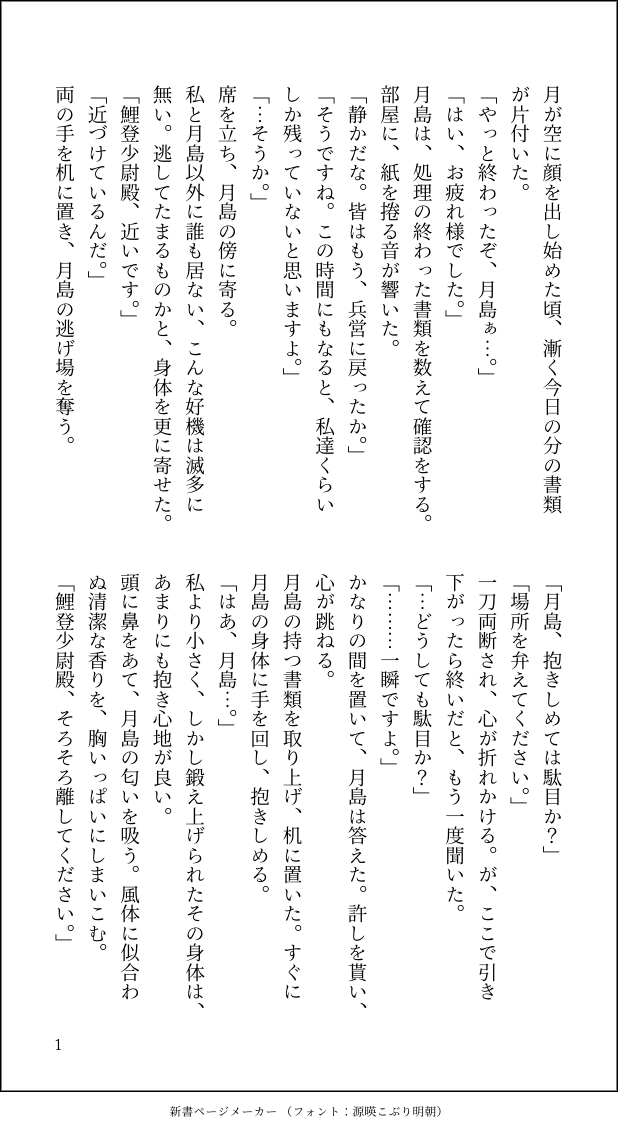 月が空に顔を出し始めた頃、漸く今日の分の書類
が片付いた。
「やっと終わったぞ、月島ぁ…。」
「はい、お疲れ様でした。」
月島は、処理の終わった書類を数えて確認をする。
部屋に、紙を捲る音が響いた。
「静かだな。皆はもう、兵営に戻ったか。」
「そうですね。この時間にもなると、私達くらい
しか残っていないと思いますよ。」
「…そうか。」
席を立ち、月島の傍に寄る。
私と月島以外に誰も居ない、こんな好機は滅多に
無い。逃してたまるものかと、身体を更に寄せた。
「鯉登少尉殿、近いです。」
「近づけているんだ。」
両の手を机に置き、月島の逃げ場を奪う。
「月島、抱きしめては駄目か?」
「場所を弁えてください。」
一刀両断され、心が折れかける。が、ここで引き
下がったら終いだと、もう一度聞いた。
「…どうしても駄目か?」
「………一瞬ですよ。」
かなりの間を置いて、月島は答えた。許しを貰い、
心が跳ねる。
月島の持つ書類を取り上げ、机に置いた。すぐに
月島の身体に手を回し、抱きしめる。
「はあ、月島…。」
私より小さく、しかし鍛え上げられたその身体は、
あまりにも抱き心地が良い。
頭に鼻をあて、月島の匂いを吸う。風体に似合わ
ぬ清潔な香りを、胸いっぱいにしまいこむ。
「鯉登少尉殿、そろそろ離してください。」
1
新書ページメーカー(フォント:源暎こぶり明朝)